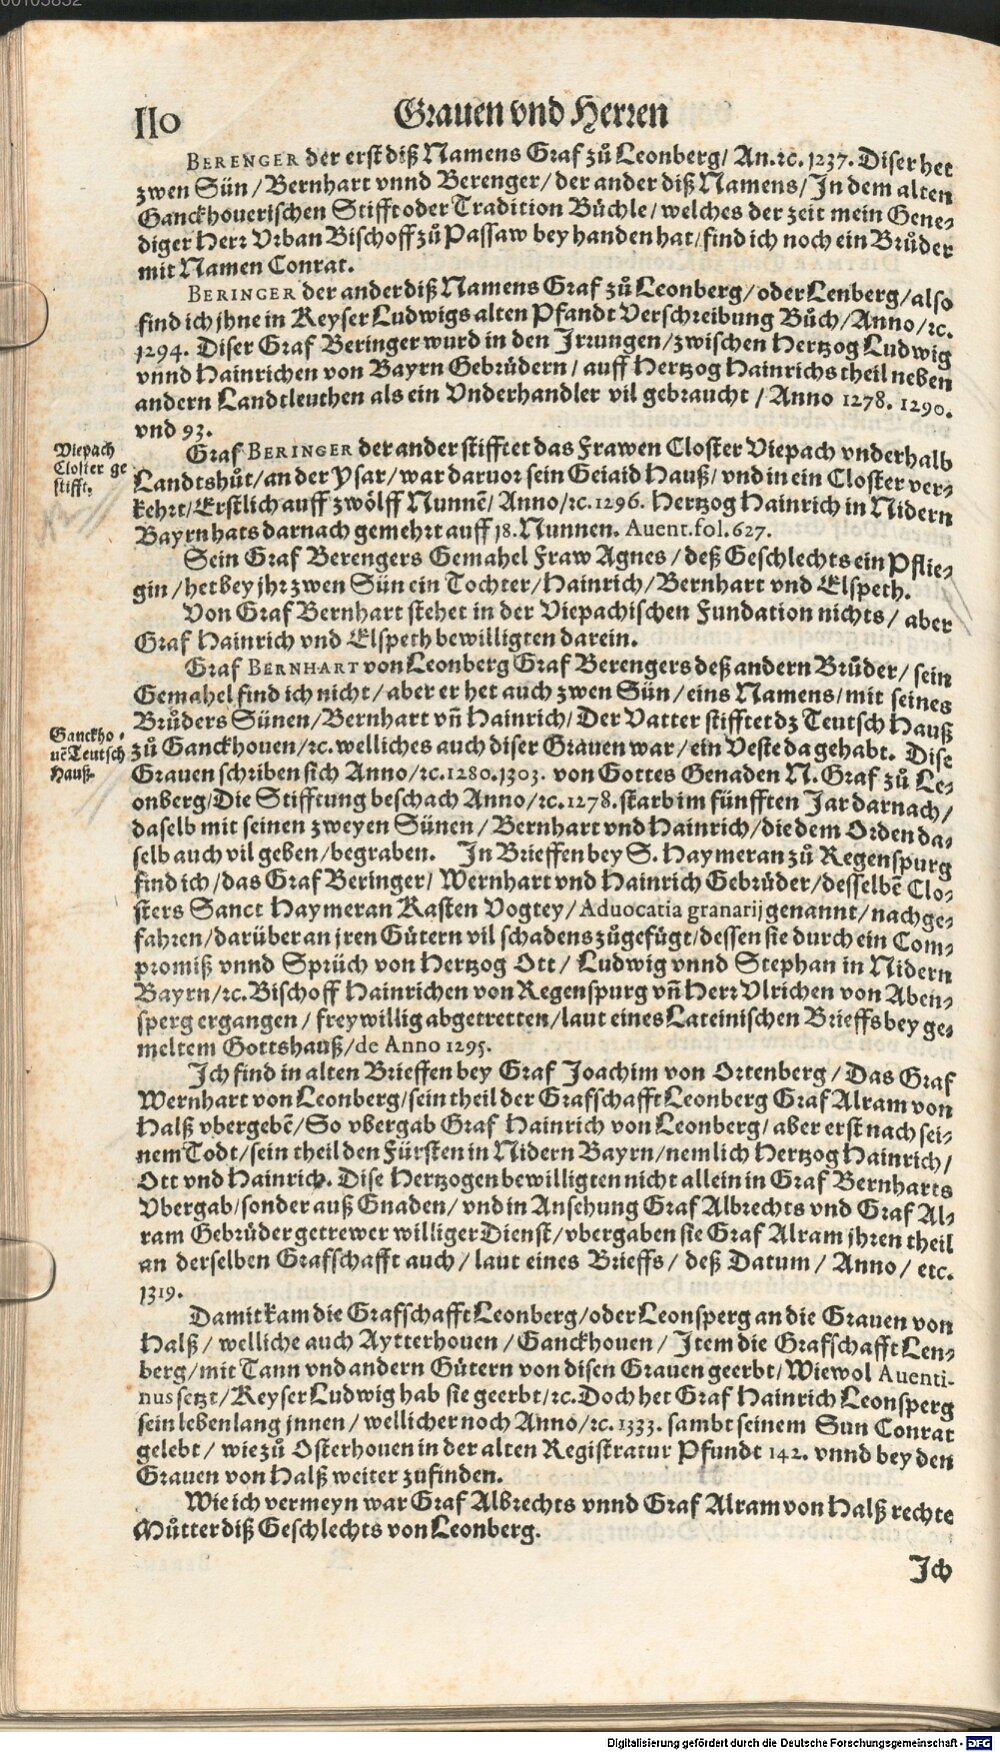 110
Grauen vnd Herren
BERENGER der erst diß Namens Graf zů Leonberg/ An.ꝛc. 1237. Diser het
zwen Sün/Bernhart vnnd Berenger/der ander diß Namens/In dem alten
Ganckhouerischen Stifft oder Tradition Büchle/welches der zeit mein Gene-
diger Herr Vrban Bischoff zů Passaw bey handen hat/find ich noch ein Brůder
mit Namen Conrat.
BERINGER der ander diß Namens Graf zů Leonberg/oder Lenberg/also
find ich jhne in Keyser Ludwigs alten Pfandt Verschreibung Bůch/Anno/ꝛc.
1294. Diser Graf Beringer wurd in den Irrungen/zwischen Hertzog Ludwig
vnnd Hainrichen von Bayrn Gebrüdern/ auff Hertzog Hainrichs theil neben
andern Landtleuthen als ein Vnderhandler vil gebraucht/Anno 1278. 1290.
vnd 93.
Viepach
Closter ge
stifft.
Graf BERINGER der ander stifftet das Frawen Closter Viepach vnderhalb
Landtshůt/an der Ysar/war daruor sein Geiaid Hauß/vnd in ein Closter ver-
kehrt/Erstlich auff zwölff Nunnẽ/Anno/ꝛc.1296. Hertzog Hainrich in Nidern
Bayrn hats darnach gemehrt auff 18. Nunnen. Auent.fol.627.
Sein Graf Berengers Gemahel Fraw Agnes/deß Geschlechts ein Pflie-
gin/het bey jhr zwen Sün ein Tochter/Hainrich/Bernhart vnd Elspeth.
Von Graf Bernhart stehet in der Viepachischen Fundation nichts/ aber
Graf Hainrich vnd Elspeth bewilligten darein.
Graf BERNHART von Leonberg Graf Berengers deß andern Brůder/ sein
Gemahel find ich nicht/aber er het auch zwen Sün/eins Namens/mit seines
Brůders Sünen/Bernhart vñ Hainrich/Der Vatter stifftet dz Teutsch Hauß
Ganckho-
uẽ Teutsch
Hauß.
zů Ganckhouen/ꝛc.welliches auch diser Grauen war/ein Veste da gehabt. Dise
Grauen schriben sich Anno/ꝛc.1280.1303. von Gottes Genaden N. Graf zů Le-
onberg/Die Stifftung beschach Anno/ꝛc.1278. starb im fünfften Jar darnach/
daselb mit seinen zweyen Sünen/Bernhart vnd Hainrich/die dem Orden da-
selb auch vil geben/begraben. In Brieffen bey S. Haymeran zů Regenspurg
find ich/das Graf Beringer/ Wernhart vnd Hainrich Gebrüder/desselbẽ Clo-
sters Sanct Haymeran Kasten Vogtey/Aduocatia granarij genannt/nachge-
fahren/darüber an jren Gütern vil schadens zůgefügt/dessen sie durch ein Com-
promiß vnnd Sprüch von Hertzog Ott/ Ludwig vnnd Stephan in Nidern
Bayrn/ꝛc.Bischoff Hainrichen von Regenspurg vñ Herr Vlrichen von Aben-
sperg ergangen/freywillig abgetretten/laut eines Lateinischen Brieffs bey ge-
meltem Gottshauß/de Anno 1295.
Ich find in alten Brieffen bey Graf Joachim von Ortenberg/Das Graf
Wernhart von Leonberg/sein theil der Grafschafft Leonberg Graf Alram von
Halß vbergebẽ/So vbergab Graf Hainrich von Leonberg/aber erst nach sei-
nem Todt/sein theil den Fürsten in Nidern Bayrn/nemlich Hertzog Hainrich/
Ott vnd Hainrich. Dise Hertzogen bewilligten nicht allein in Graf Bernharts
Vbergab/sonder auß Gnaden/ vnd in Ansehung Graf Albrechts vnd Graf Al-
ram Gebrüder getrewer williger Dienst/vbergaben sie Graf Alram jhren theil
an derselben Grafschafft auch/ laut eines Brieffs/ deß Datum/Anno/ etc.
1319.
Damit kam die Grafschafft Leonberg/oder Leonsperg an die Grauen von
Halß/welliche auch Aytterhouen/Ganckhouen/Item die Grafschafft Len-
berg/mit Tann vnd andern Gütern von disen Grauen geerbt/Wiewol Auenti-
nus setzt/Keyser Ludwig hab sie geerbt/ꝛc.Doch het Graf Hainrich Leonsperg
sein lebenlang jnnen/wellicher noch Anno/ꝛc. 1333. sambt seinem Sun Conrat
gelebt/ wie zů Osterhouen in der alten Registratur Pfundt 142. vnnd bey den
Grauen von Halß weiter zufinden.
Wie ich vermeyn war Graf Albrechts vnnd Graf Alram von Halß rechte
Můtter diß Geschlechts von Leonberg.
Ich
Digitalisierung gefördert durch die Deutsche Forschungsgemeinschaft - DFG